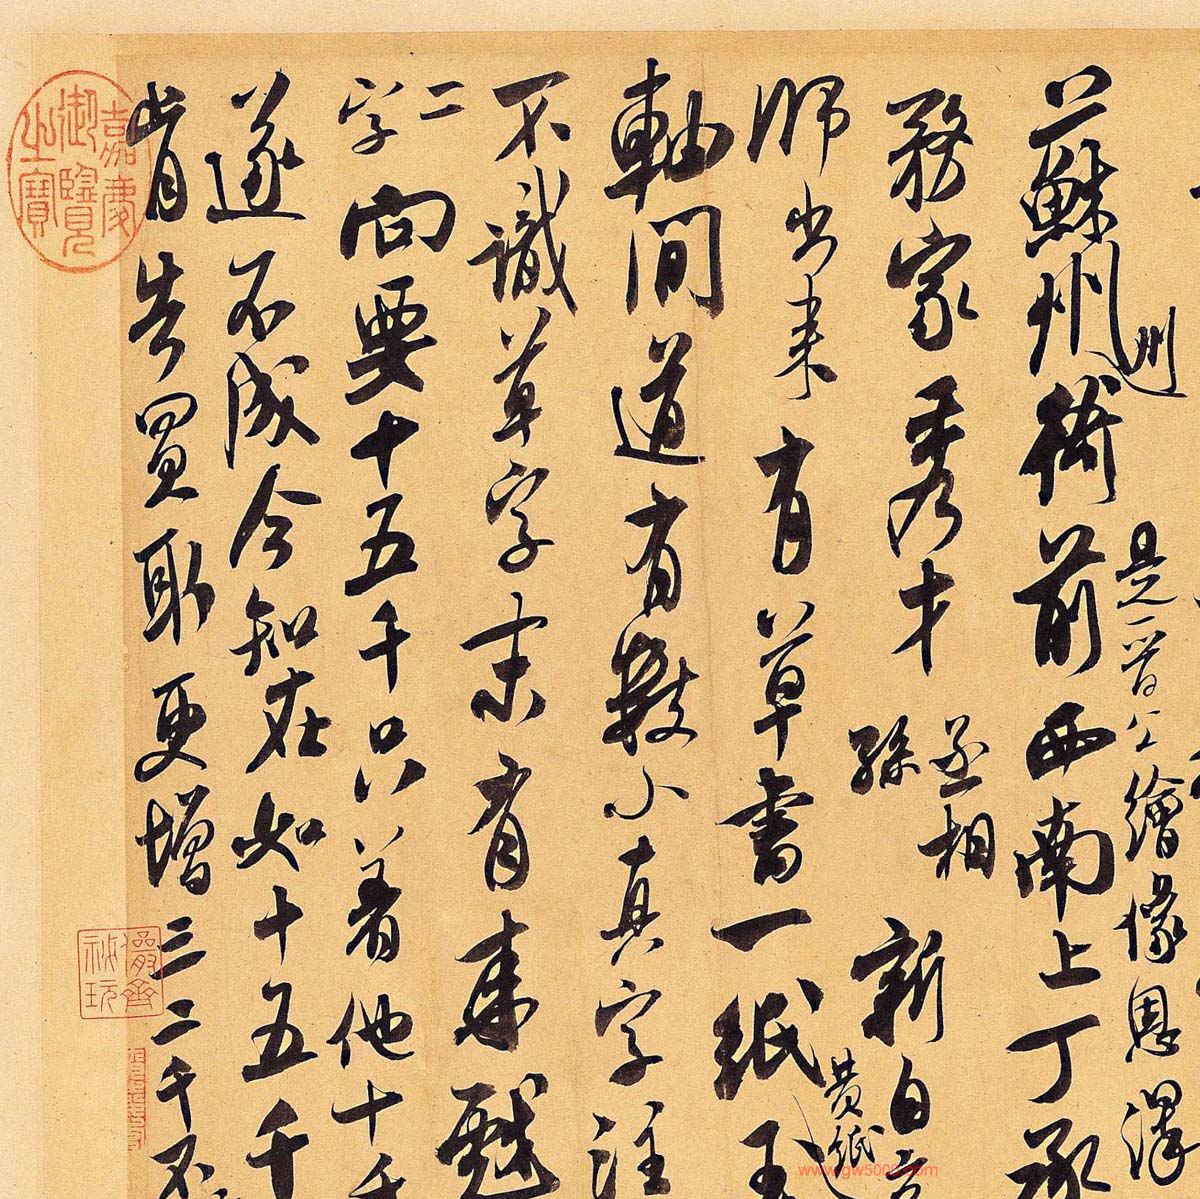 是晉公繪像恩澤
州
蘇州衙前西南上丁承
務家秀才
丞相
孫
新自
師出來有草書一紙
黃紙
軸間道有數小真字注
不識草字末有來戲
二
字向要十五千只著他十千
遂不成今知在如十五千
肯告買取更增三二千不
嘉慶御覽之寶
儼齋秘玩
www.gw5000.com